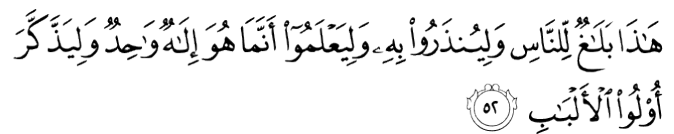 هَٰذَا بَلَٰغٌ لِّلنَّاسِ وَلِيُنذَرُواْ بِهِۦ وَلِيَعۡلَمُوٓاْ أَنَّمَا هُوَ إِلَٰهٌ وَٰحِدٌ وَلِيَذَّكَّرَ
أُوْلُواْ ٱلۡأَلۡبَٰبِ ٥٢